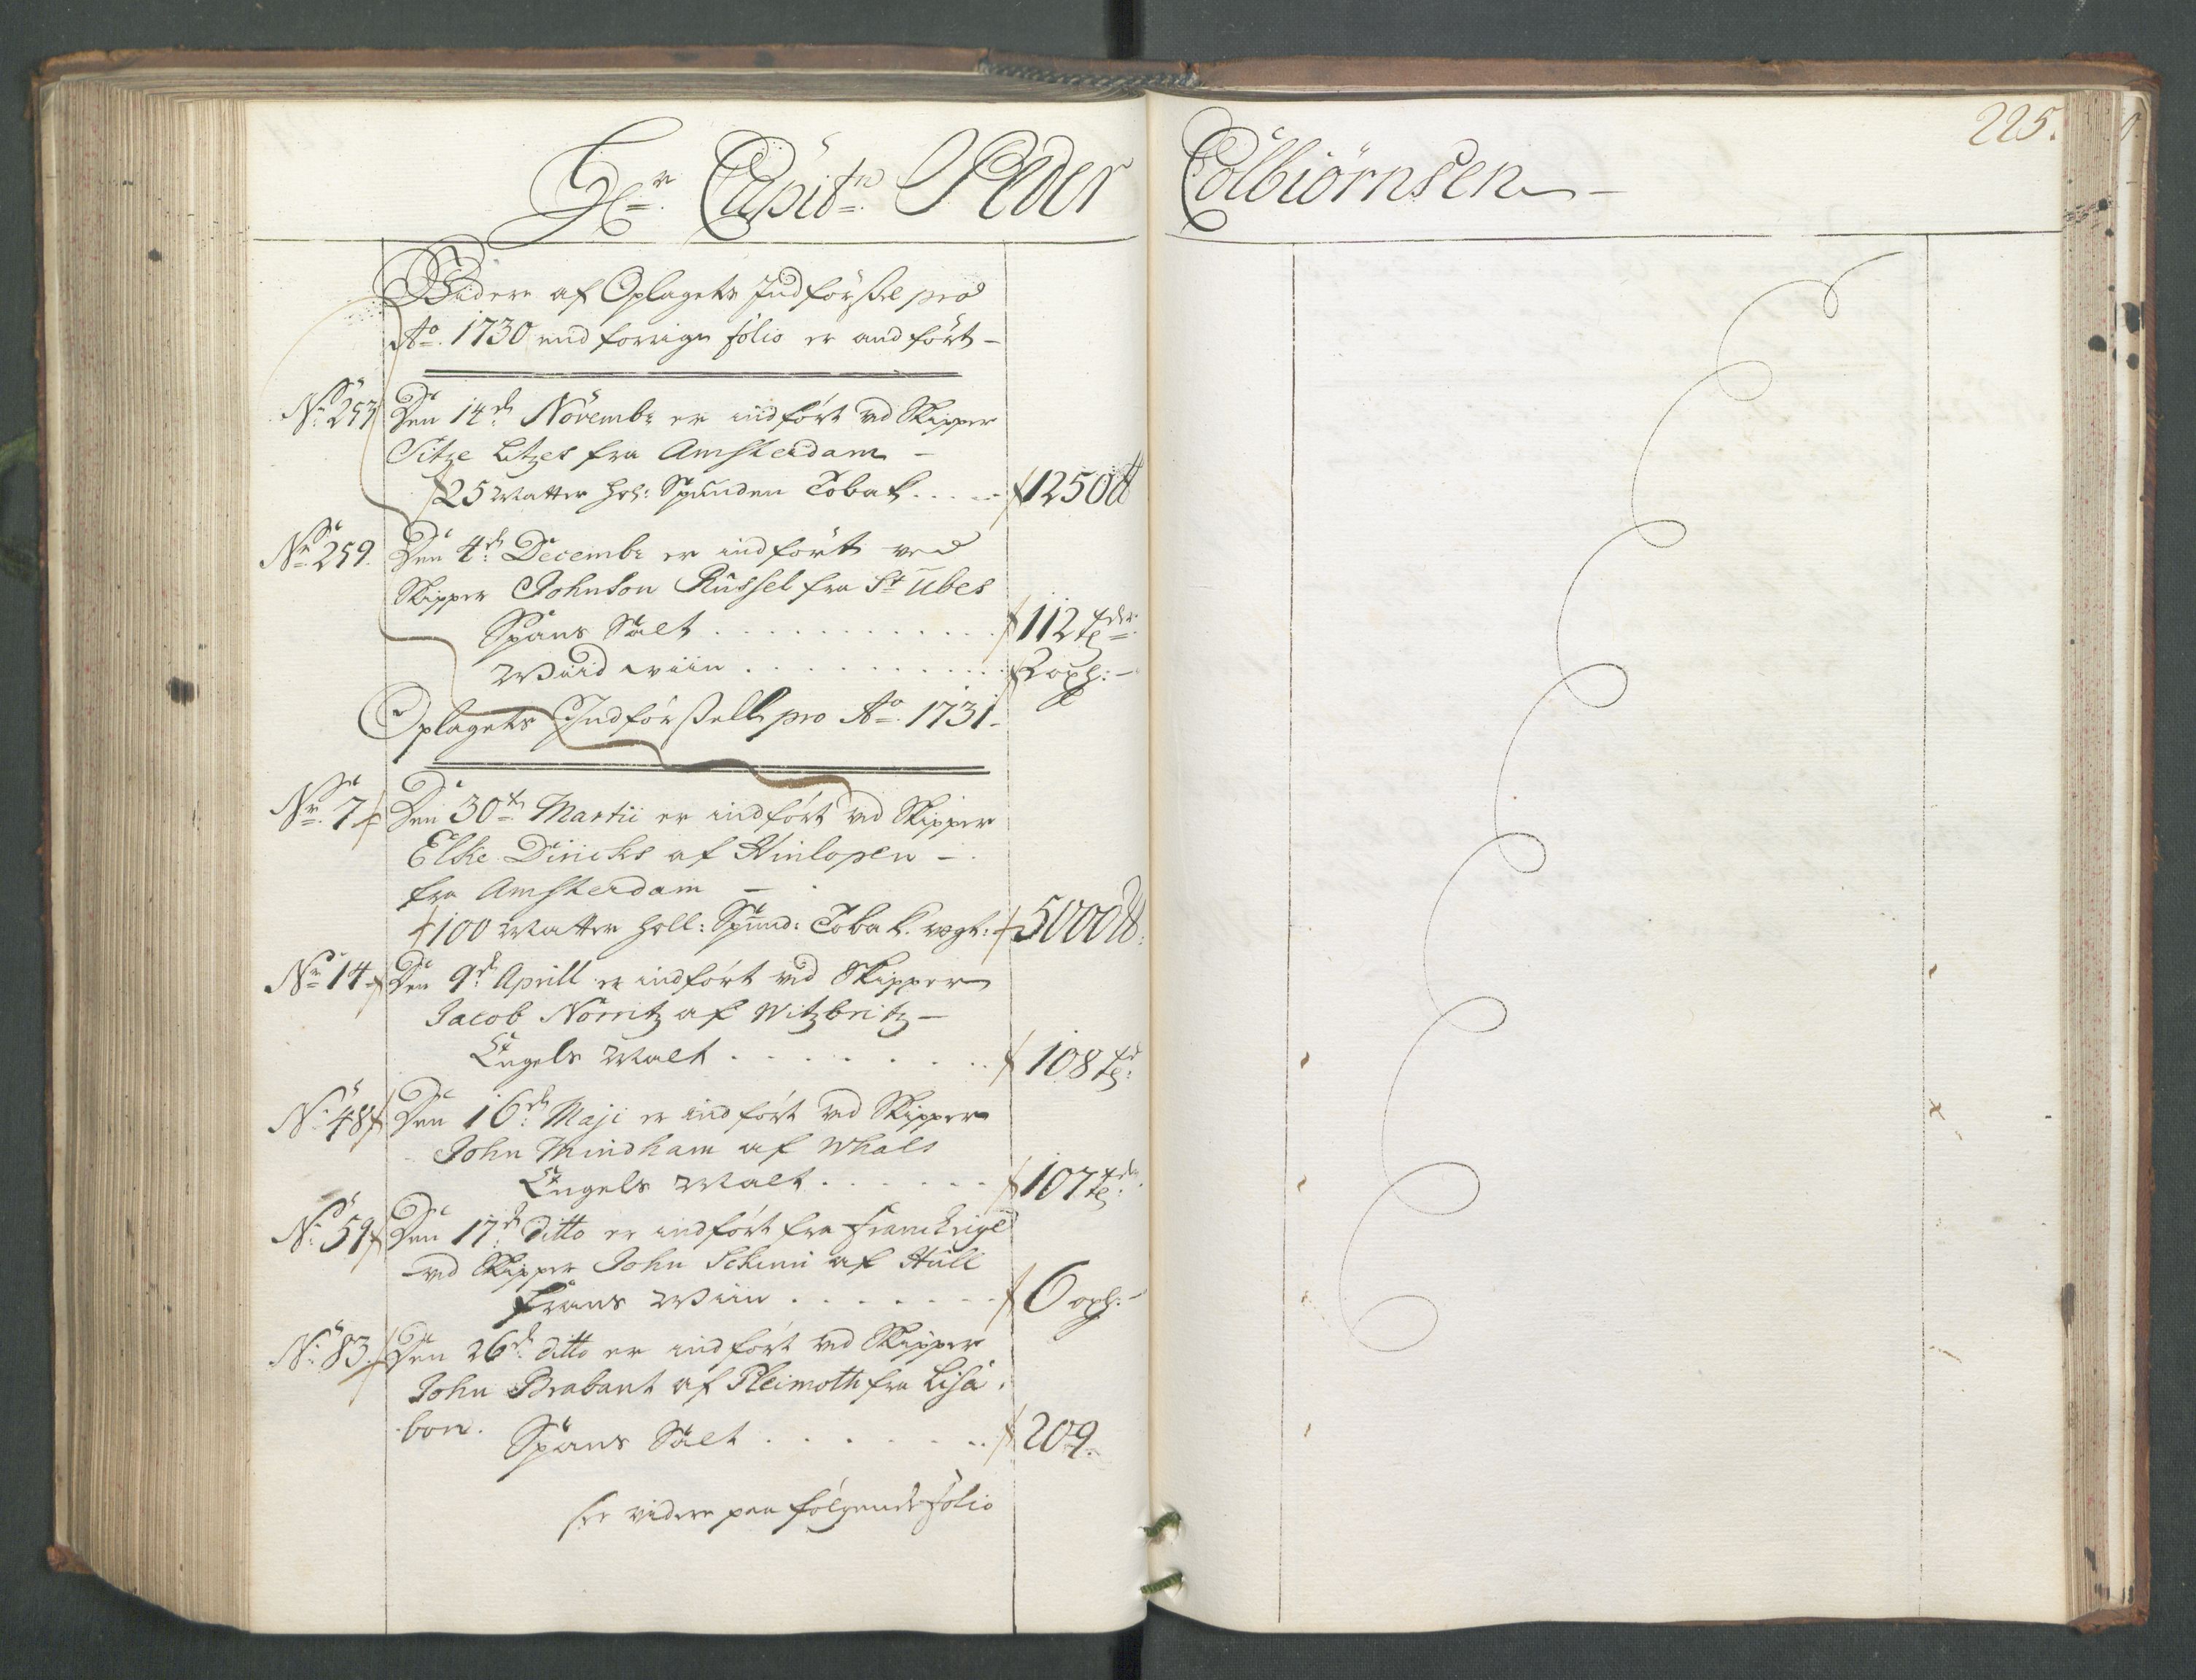 225.
Hr. Capitn. Peder Colbiörnsen
Videre af Oplagets Indförsel pro
Ao. 1730 end forrige folio er andfört
No. 253 Den 14de Novembr er indfört ved Skipper
Sitze Litzes fra Amsterdam
25 Matter hol: Spunden Tobak . . . 1250 ℔
No. 259. Den 4de Decembr er indfört ved
Skipper Johnson Russel fra St. Ubes
Spans Salt . . . 112 tdr.
Muid viin . . . 2 oxh:
Oplagets Indförsell pro Ao. 1731.
No. 7 Den 30te Martii er indfört ved Skipper
Elke Diricks af Hinlopen
fra Amsterdam
100 Matter holl: Spund: Tobak. vegt: 5000 ℔:
No. 14 Den 9de Aprill er indfört ved Skipper
Jacob Norritz af Witzbritz
Engels Malt . . . 108 td:
No. 48 Den 16de Maji er indfört ved Skipper
John Mindham af Whals
Engels Malt . . . 107 tdr:
No. 59 Den 17de ditto er indfört fra Franckrige
ved Skipper John Schinn af Hull
Frans Wiin . . . 6 oxh:
No. 83. Den 26de ditto er indfört ved Skipper
John Brabant af Pleimoth fra Lisa
bon. Spans Salt . . . 209.
see videre paa fölgende folio